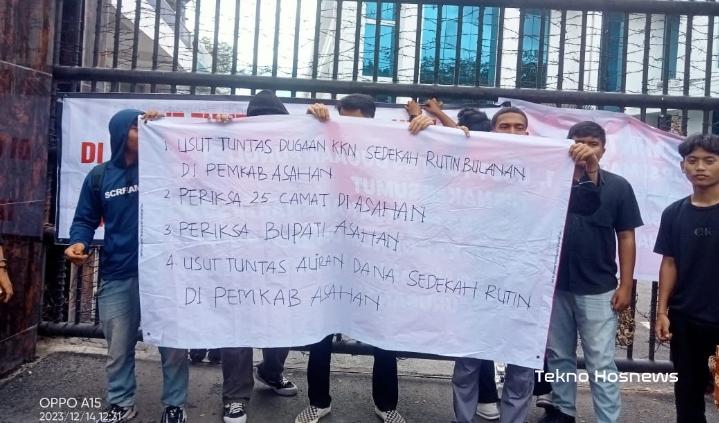 1. USUT TUNTAS DUGAAN KKN SEDEKAH RUTIN BULANAN
DI PEMKAB ASAHAN
2. PERIKSA 25 CAMAT DI ASAHAN
3. PERIKSA BUPATI ASAHAN
4. USUT TUNTAS ALIRAN DANA SEDEKAH RUTIN
DI PEMKAB ASAHAN
SCREAM
DI
SUMUT
Tekno Hosnews
OPPO A15
2023/12/14 12:31